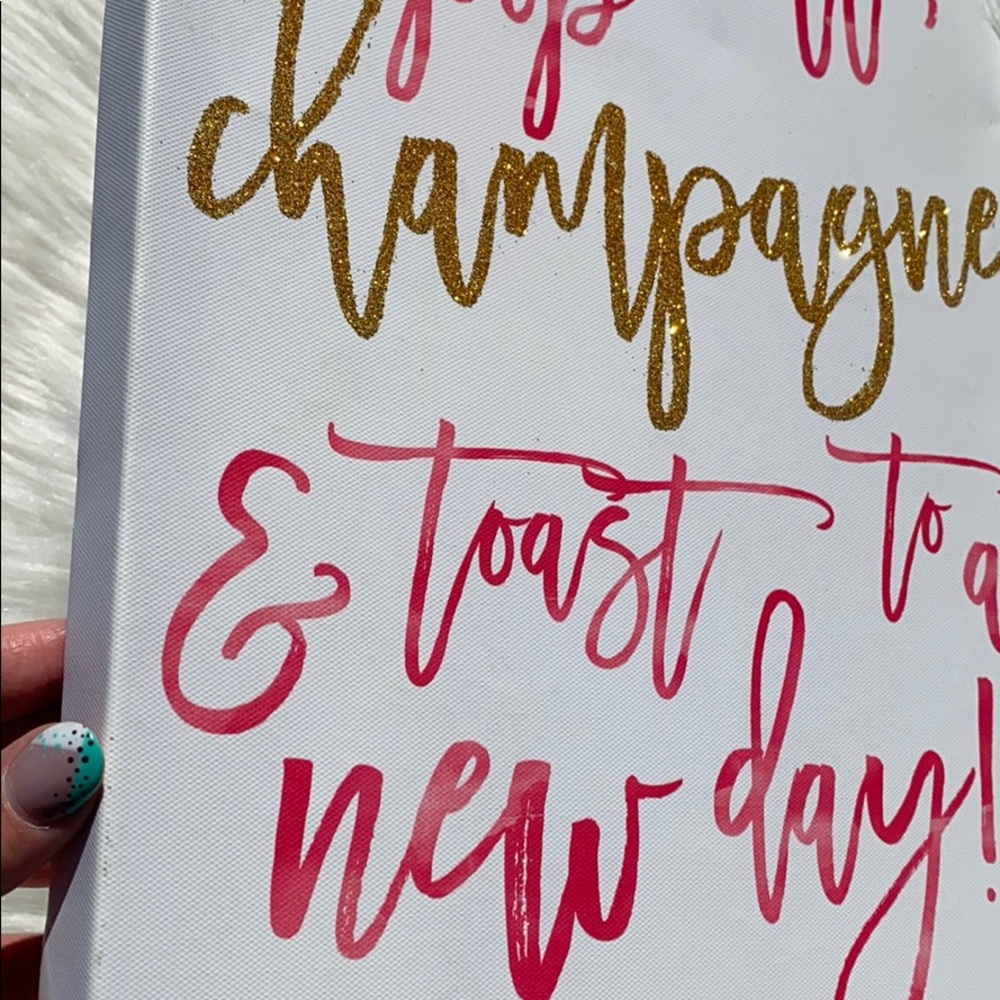 champagne
& toast to a
new day!